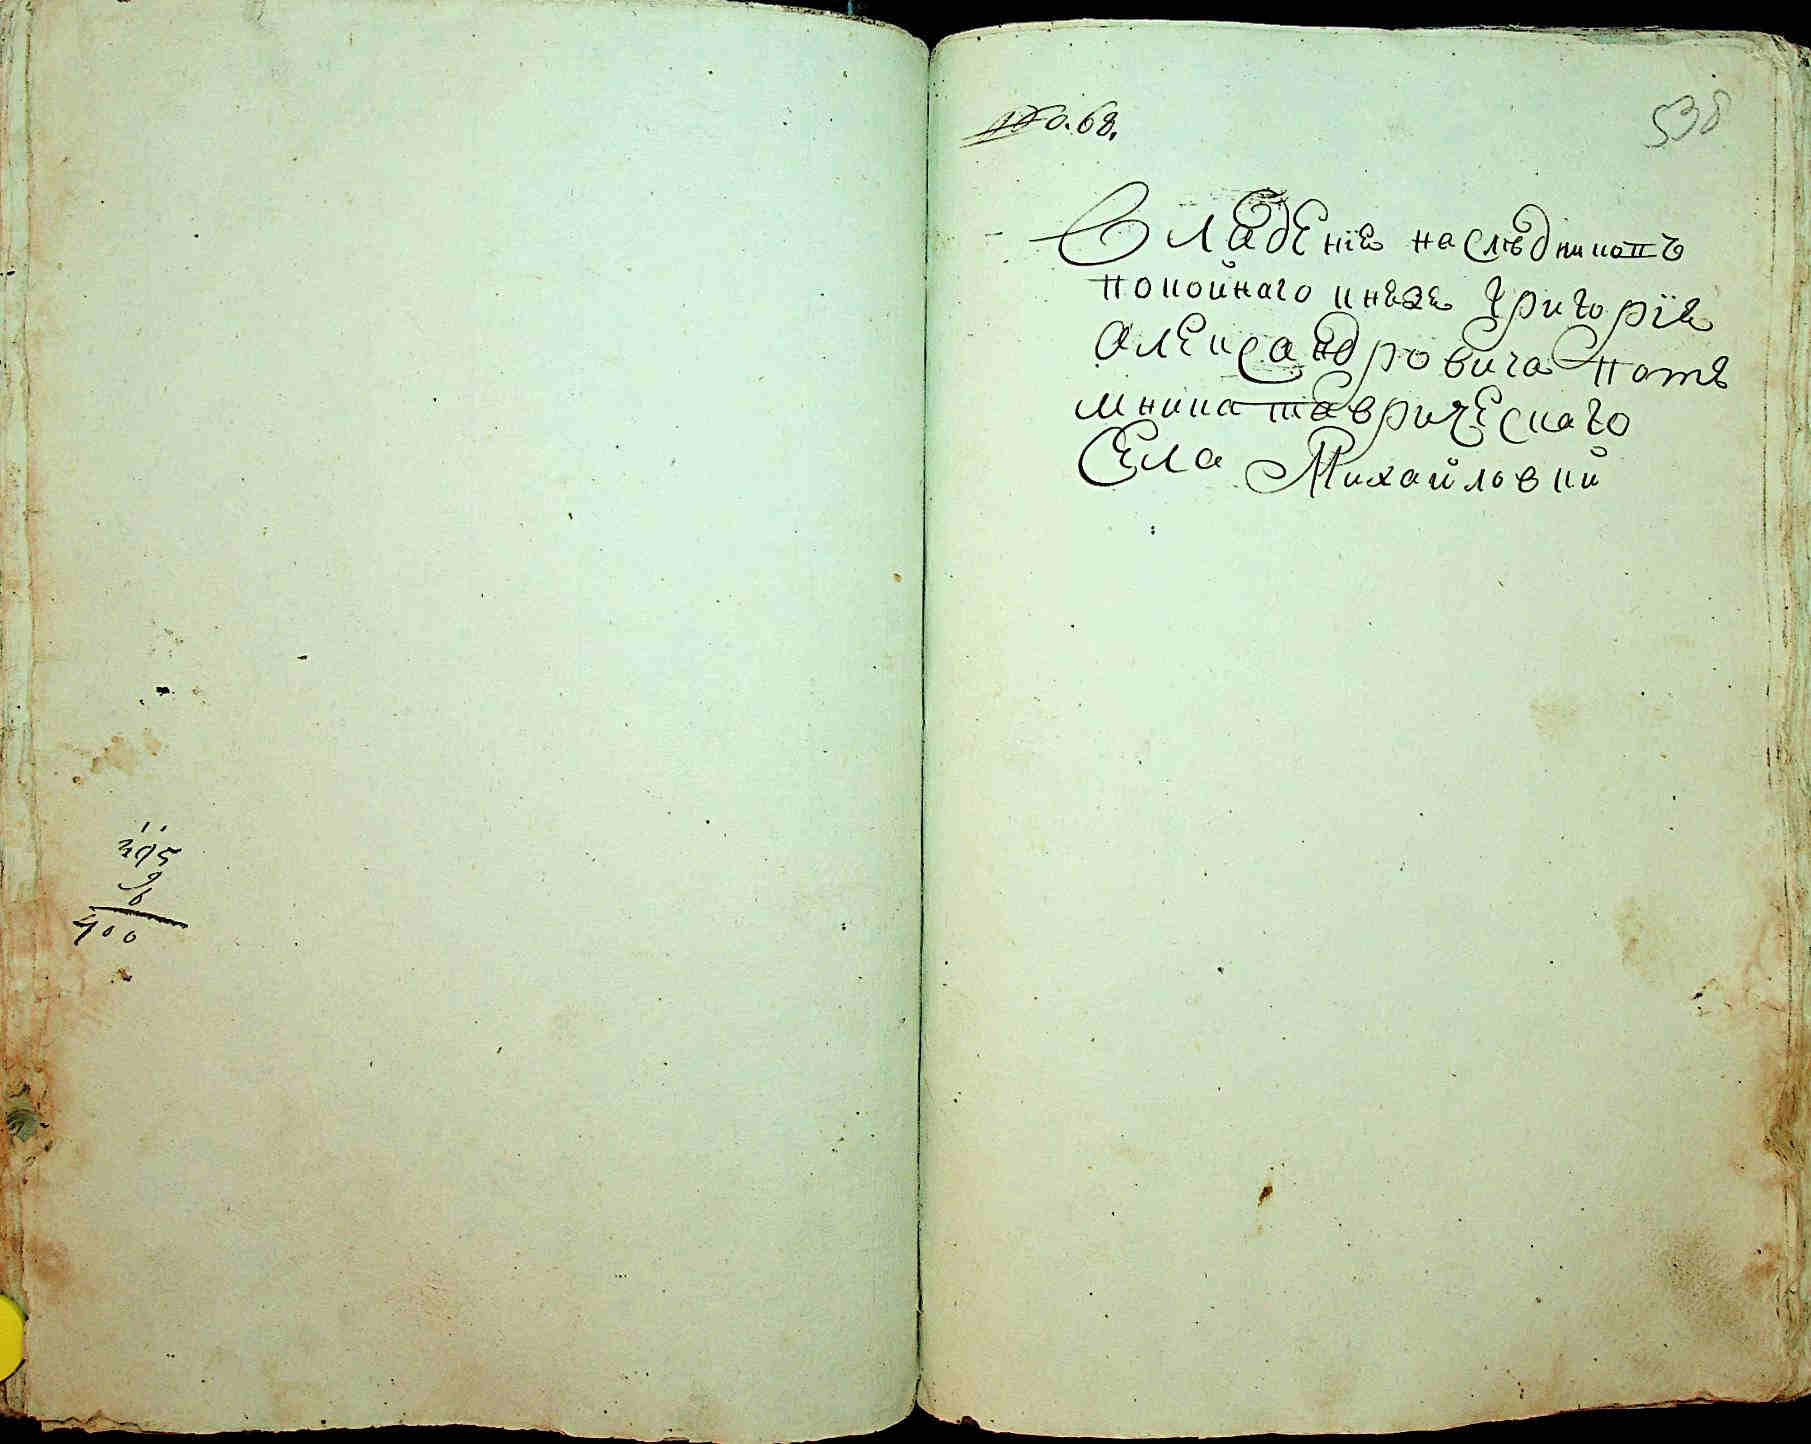 395
8
400
538
68.
Владѣніе наслѣдниковъ
покойнаго князя Григорія
Александровича Потѣ
мкина таврическаго
Села Михайловки